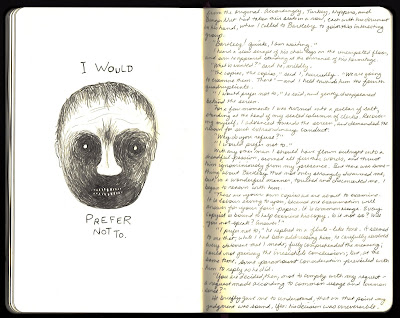 I WOULD
PREFER
NOT TO.
from the original. Accordingly, Turkey, Nippers, and
Ginger Nut had taken their seats in a row, each with his document
in hand, when I called to Bartleby to join this interesting
group.
"Bartleby! quick, I am waiting."
I heard a slow scrape of his chair legs on the uncarpeted floor,
and soon he appeared standing at the entrance of his hermitage.
"What is wanted?" said he, mildly.
"The copies, the copies," said I, hurriedly. "We are going
to examine them. There" — and I held towards him the fourth
quadruplicate.
"I would prefer not to," he said, and gently disappeared
behind the screen.
For a few moments I was turned into a pillar of salt,
standing at the head of my seated column of clerks. Recovering
myself, I advanced towards the screen, and demanded the
reason for such extraordinary conduct.
"Why do you refuse?"
"I would prefer not to."
With any other man I should have flown outright into a
dreadful passion, scorned all further words, and thrust
him ignominiously from my presence. But there was some-
thing about Bartleby that not only strangely disarmed me,
but, in a wonderful manner, touched and disconcerted me. I
began to reason with him.
"These are your own copies we are about to examine.
It is labor saving to you, because one examination will
answer for your four papers. It is common usage. Every
copyist is bound to help examine his copy. Is it not so? Will
you not speak? Answer!"
"I prefer not to," he replied in a flute-like tone. It seemed
to me that, while I had been addressing him, he carefully revolved
every statement that I made; fully comprehended the meaning;
could not gainsay the irresistible conclusions; but, at the
same time, some paramount consideration prevailed with
him to reply as he did.
"You are decided, then, not to comply with my request —
a request made according to common usage and common
sense?"
He briefly gave me to understand, that on that point my
judgment was sound. Yes: his decision was irreversible.